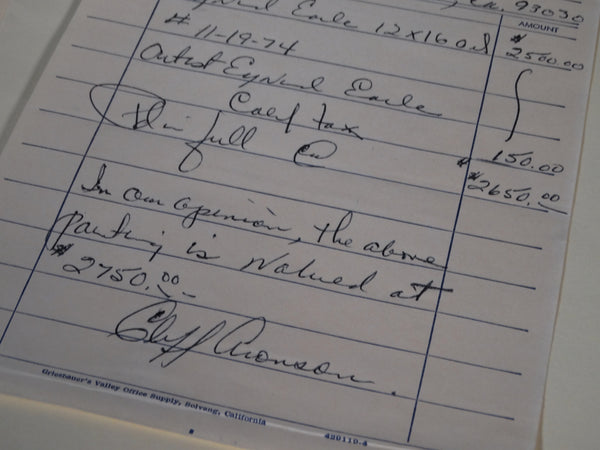 Eyvind Earle 12x16 oil
93030
AMOUNT
# 11-19-74
$2500.00
Artist Eyvind Earle
Calif tax
150.00
full
$2650.00
In our opinion, the above
painting is valued at
$2750.00
Cliff Aronson.
Griesbauer's Valley Office Supply, Solvang, California
420110-4